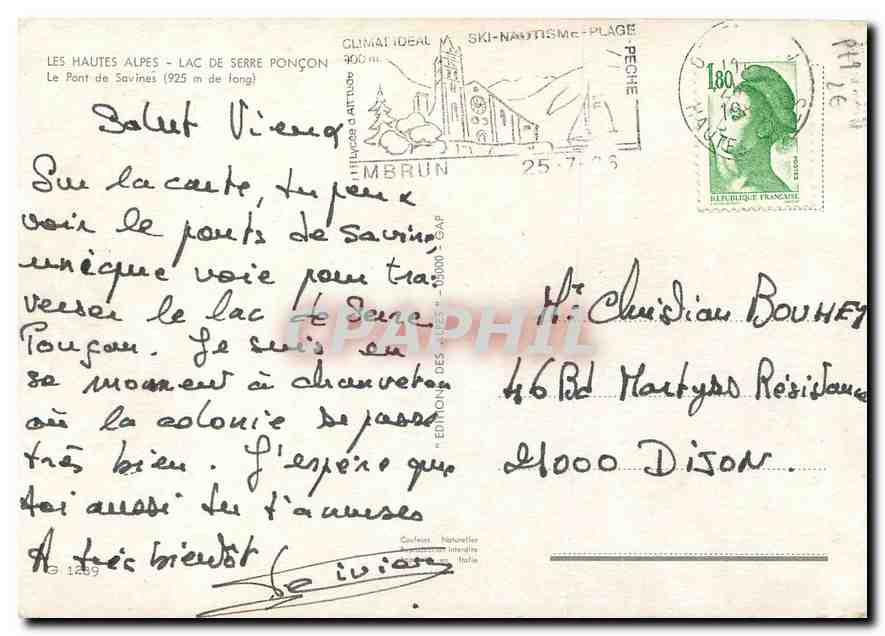 LES HAUTES ALPES - LAC DE SERRE PONÇON
Le Pont de Savines (925 m de long)
CLIMAT IDEAL SKI-NAUTISMe-PLAGE
-PECHE
900 m.
Lycée d'Altitude
MBRUN 25-7-86
HAUTES
1,80
POSTES
REPUBLIQUE FRANÇAISE
2€
Salut
Sur la carte, tu peux
voir le ponts de Savine,
unèque voie pour tra-
verser le lac de Serre
Ponçon. Je suis en
se moment à chanveton
où la colonie se passe
très bien. J'espère que
toi aussi tu t'amuses
A très bientôt
G 1289
"EDITIONS DES ALPES" - 05000 - GAP
Couleurs Naturelles
Reproduction interdite
en Italie
CPAPHIL
Mr Christian BOUHEY
46 Bd Martyrs Résistance
21000 DIJON.